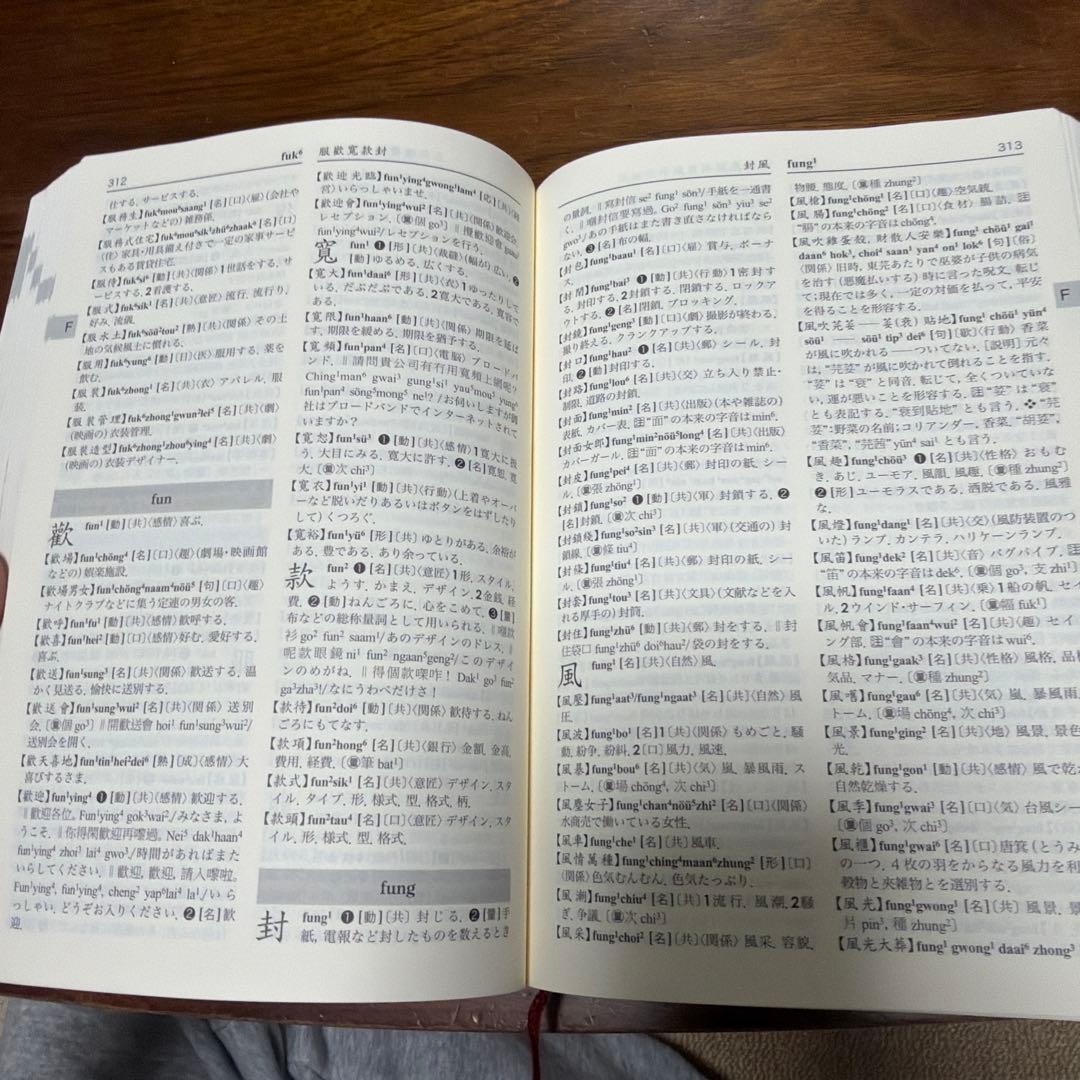 312
fuk⁶ 服歡寬款封
仕する, サービスする.
【服務生】fuk⁶mou⁶saang¹ [名]〔口〕〈雇〉(会社や
マーケットなどの) 雑務係.
【服務式住宅】fuk⁶mou⁶sik¹zhü⁶zhaak⁶ [名]〔口〕
〈住〉家具・用具備え付きで一定の家事サービ
スもある賃貸住宅.
【服侍】fuk⁶si⁶ [動]〔共〕〈関係〉1世話をする, サ
ービスする. 2看護する.
【服式】fuk⁶sik¹ [名]〔共〕〈意匠〉流行, 流行り,
好み, 流儀.
【服水土】fuk⁶söü²tou² [熟]〔共〕〈関係〉その土
地の気候風土に慣れる.
【服用】fuk⁶yung⁶ [動]〔日〕〈医〉服用する, 薬を
飲む.
【服裝】fuk⁶zhong¹ [名]〔共〕〈衣〉アパレル, 服
装.
【服裝管理】fuk⁶zhong¹gwun²lei⁵ [名]〔共〕〈劇〉
(映画の) 衣装管理.
【服裝造型】fuk⁶zhong¹zhou⁶ying⁴ [名]〔共〕〈劇〉
(映画の) 衣装デザイナー.
F
fun
歡 fun¹ [動]〔共〕〈感情〉喜ぶ.
【歡場】fun¹chöng⁴ [名]〔口〕〈趣〉(劇場・映画館
などの) 娯楽施設.
【歡場男女】fun¹chöng⁴naam⁴nöü⁵ [句]〔口〕〈趣〉
ナイトクラブなどに集う定連の男女の客.
【歡呼】fun¹fu¹ [動]〔共〕〈感情〉歓呼する.
【歡喜】fun¹hei² [動]〔口〕〈感情〉好む, 愛好する,
喜ぶ.
【歡送】fun¹sung³ [動]〔共〕〈関係〉歓送する, 温
かく見送る, 愉快に送別する.
【歡送會】fun¹sung³wui² [名]〔共〕〈関係〉送別
会. 〔量個 go³〕‖開歡送會 hoi¹ fun¹sung³wui²/
送別会を開く.
【歡天喜地】fun¹tin¹hei²dei⁶ [熟]〔成〕〈感情〉大
喜びするさま.
【歡迎】fun¹ying⁴ ❶ [動]〔共〕〈感情〉歓迎する.
‖歡迎各位. Fun¹ying⁴ gok³wai²/みなさま, よ
うこそ. ‖你得閑歡迎再嚟過. Nei⁵ dak¹haan⁴
fun¹ying⁴ zhoi³ lai⁴ gwo³./時間があればまた
いらしてください. ‖歡迎, 歡迎, 請入嚟啦.
Fun¹ying⁴, fun¹ying⁴, cheng² yap⁶lai⁴ la¹./いら
っしゃい. どうぞお入りください. ❷ [名] 歓
迎.
【歡迎光臨】fun¹ying⁴gwong¹lam⁴ [応]〔共〕〈経
営〉いらっしゃいませ.
【歡迎會】fun¹ying⁴wui² [名]〔共〕〈関係〉歓迎会,
レセプション. 〔量個 go³〕‖攪歡迎會 gaau²
fun¹ying⁴wui²/レセプションを行う.
寬 fun¹ ❶ [形]〔共〕〈裁縫〉(幅が) 広い. ❷
[動] ゆるめる, 広くする.
【寬大】fun¹daai⁶ [形]〔共〕〈衣〉1ゆったりして
いる, だぶだぶである. 2寛大である, 寛容で
ある.
【寬限】fun¹haan⁶ [動]〔共〕〈関係〉期限を延ば
す, 期限を緩める, 期限を猶予する.
【寬頻】fun¹pan⁴ [名]〔口〕〈電脳〉ブロードバ
ンド. ‖請問貴公司有冇用寬頻上網呢?
Ching²man⁶ gwai³ gung¹si¹ yau⁵mou⁵ yung⁶
fun¹pan⁴ söng⁵mong⁵ ne¹?/お伺いしますが御
社はブロードバンドでインターネットされて
いますか?
【寬恕】fun¹sü³ ❶ [動]〔共〕〈感情〉1寛大に扱
う, 大目にみる, 寛大に許す. ❷ [名] 寛恕, 寛
大. 〔量次 chi³〕
【寬衣】fun¹yi¹ [動]〔共〕〈行動〉(上着やオーバ
ーなど脱いだりあるいはボタンをはずしたり
して) くつろぐ.
【寬裕】fun¹yü⁶ [形]〔共〕ゆとりがある, 余裕が
ある, 豊である, あり余っている.
款 fun² ❶ [名]〔共〕〈意匠〉1形, スタイル,
ようす, かまえ, デザイン. 2金銭, 経
費. ❷ [動] ねんごろに, 心をこめて. ❸ [量]
布などの総称量詞として用いられる. ‖嗰款
衫 go² fun² saam¹/あのデザインのドレス. ‖
呢款眼鏡 ni¹ fun² ngaan⁵geng²/このデザイ
ンのめがね. ‖得個款㗎咋! Dak¹ go³ fun²
ga³zha³!/なにうわべだけさ!
【款待】fun²doi⁶ [動]〔共〕〈関係〉歓待する, ねん
ごろにもてなす.
【款項】fun²hong⁶ [名]〔共〕〈銀行〉金額, 金高,
費用, 経費. 〔量筆 bat¹〕
【款式】fun²sik¹ [名]〔共〕〈意匠〉デザイン, スタ
イル, タイプ, 形, 様式, 型, 格式, 柄.
【款頭】fun²tau⁴ [名]〔口〕〈意匠〉デザイン, スタ
イル, 形, 様式, 型, 格式.
fung
封 fung¹ ❶ [動]〔共〕封じる. ❷ [量] 手
紙, 電報など封したものを数えるとき
封風 fung¹
313
の量詞. ‖寫封信 se² fung¹ sön³/手紙を一通書
く. ‖嗰封信要寫過. Go² fung¹ sön³ yiu³ se²
gwo³/あの手紙はまた書き直さなければなら
ない. ❸ [名] 布の幅.
【封包】fung¹baau¹ [名]〔口〕〈雇〉賞与, ボーナ
ス.
【封閉】fung¹bai³ ❶ [動]〔共〕〈行動〉1密封す
る, 封印する. 2封鎖する, 閉鎖する, ロックア
ウトする. ❷ [名] 閉鎖, ブロッキング.
【封鏡】fung¹geng³ [動]〔共〕〈劇〉撮影が終わる,
撮り終える, クランクアップする.
【封口】fung¹hau² ❶ [名]〔共〕〈郵〉シール, 封
印. ❷ [動] 封印する.
【封路】fung¹lou⁶ [名]〔共〕〈交〉立ち入り禁止・
制限, 道路の封鎖.
【封面】fung¹min² [名]〔共〕〈出版〉(本や雑誌の)
表紙, カバー表. 注“面”の本来の字音は min⁶.
【封面女郎】fung¹min²nöü⁵long⁴ [名]〔共〕〈出版〉
カバーガール. 注“面”の本来の字音は min⁶.
【封皮】fung¹pei⁴ [名]〔共〕〈郵〉封印の紙, シー
ル. 〔量張 zhöng¹〕
【封鎖】fung¹so² ❶ [動]〔共〕〈軍〉封鎖する. ❷
[名] 封鎖. 〔量次 chi³〕
【封鎖綫】fung¹so²sin³ [名]〔共〕〈軍〉(交通の) 封
鎖線. 〔量條 tiu⁴〕
【封條】fung¹tiu⁴ [名]〔共〕〈郵〉封印の紙, シー
ル. 〔量張 zhöng¹〕
【封套】fung¹tou³ [名]〔共〕〈文具〉(文献などを入
れる厚手の) 封筒.
【封住】fung¹zhü⁶ [動]〔共〕〈郵〉封をする. ‖封
住袋口 fung¹zhü⁶ doi⁶hau²/袋の封をする.
風 fung¹ [名]〔共〕〈自然〉風.
【風壓】fung¹aat³/fung¹ngaat³ [名]〔共〕〈自然〉風
圧.
【風波】fung¹bo¹ [名] 1〔共〕〈関係〉もめごと, 騒
動, 紛争, 紛糾. 2〔口〕風力, 風速.
【風暴】fung¹bou⁶ [名]〔共〕〈気〉嵐, 暴風雨, ス
トーム. 〔量場 chöng⁴, 次 chi³〕
【風塵女子】fung¹chan⁴nöü⁵zhi² [名]〔口〕〈関係〉
水商売で働いている女性.
【風車】fung¹che¹ [名]〔共〕風車.
【風情萬種】fung¹ching⁴maan⁶zhung² [形]〔口〕
〈関係〉色気むんむん, 色気たっぷり.
【風潮】fung¹chiu⁴ [名]〔共〕1流行, 風潮. 2騒
ぎ, 争議. 〔量次 chi³〕
【風采】fung¹choi² [名]〔共〕〈関係〉風采, 容貌,
物腰, 態度. 〔量種 zhung²〕
【風槍】fung¹chöng¹ [名]〔口〕〈趣〉空気銃.
【風腸】fung¹chöng² [名]〔口〕〈食材〉腸詰. 注
“腸”の本来の字音は chöng⁴.
【風吹雞蛋殼, 財散人安樂】fung¹ chöü¹ gai¹
daan⁶ hok³, choi⁴ saan³ yan⁴ on¹ lok⁶ [句]〔俗〕
〈関係〉旧時, 東莞あたりで巫婆が子供の病気
を治す (悪魔払いする) 時に言った呪文. 転じ
て; 現在では多く, 一定の対価を払って, 平安
を得ることを形容する.
【風吹芫荽 — 荽(衰) 貼地】fung¹ chöü¹ yün⁴
söü¹ — söü¹ tip³ dei⁶ [句]〔歇〕〈行動〉香菜
が風に吹かれる — ついてない. [説明] 元々
は, “芫荽”が風に吹かれて倒れることを指す.
“荽”は“衰”と同音. 転じて, 全くついていな
い, 運が悪いことを形容する. 注“荽”は“衰”
とも表記する. “衰到貼地”とも言う. ❖“芫
荽”: 野菜の名前; コリアンダー, 香菜. “胡荽”,
“香菜”, “芫茜” yün⁴ sai¹ とも言う.
【風趣】fung¹chöü³ ❶ [名]〔共〕〈性格〉おもむ
き, あじ, ユーモア, 風韻, 風趣. 〔量種 zhung²〕
❷ [形] ユーモラスである, 洒脱である, 風雅
な.
【風燈】fung¹dang¹ [名]〔共〕〈交〉(風防装置のつ
いた) ランプ, カンテラ, ハリケーンランプ.
【風笛】fung¹dek² [名]〔共〕〈音〉バグパイプ. 注
“笛”の本来の字音は dek⁶. 〔量個 go³, 支 zhi¹〕
【風帆】fung¹faan⁴ [名]〔共〕〈乗〉1船の帆, セイ
ル. 2ウインド・サーフィン. 〔量幅 fuk¹〕
【風帆會】fung¹faan⁴wui² [名]〔共〕〈趣〉セイ
ング部. 注“會”の本来の字音は wui⁶.
【風格】fung¹gaak³ [名]〔共〕〈性格〉風格, 品格
気品, マナー. 〔量種 zhung²〕
F
【風嚿】fung¹gau⁶ [名]〔共〕〈気〉嵐, 暴風雨
トーム. 〔量場 chöng⁴, 次 chi³〕
【風景】fung¹ging² [名]〔共〕〈地〉風景, 景色
光.
【風乾】fung¹gon¹ [動]〔共〕〈感情〉風で乾か
自然乾燥する.
【風季】fung¹gwai³ [名]〔口〕〈気〉台風シー
〔量個 go³, 次 chi³〕
【風櫃】fung¹gwai⁶ [名]〔口〕唐箕 (とうみ
の一つ, 4枚の羽をからなる風力を利
穀物と夾雑物とを選別する.
【風光】fung¹gwong¹ [名]〔共〕風景, 景
片 pin³, 種 zhung²〕
【風光大葬】fung¹ gwong¹ daai⁶ zhong³